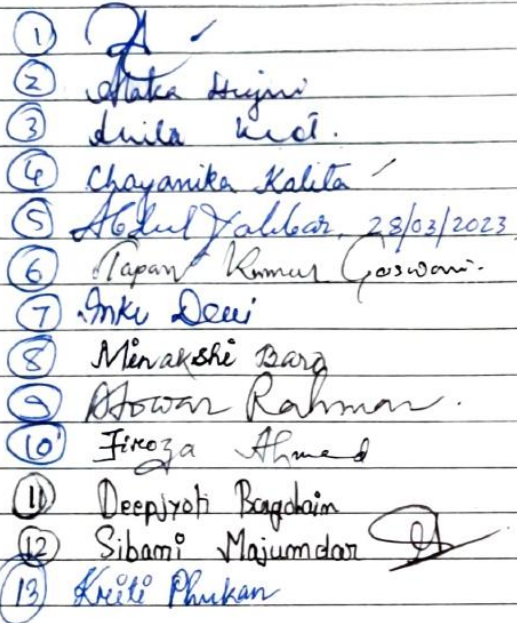 1
2
3
4 Chayanika Kalita
5 Abdul Jabbar, 28/03/2023
6 Tapan Kumar Goswami.
7 Devi
8 Minakshi Bara
9 Rahman.
10 Firoza Ahmed
11 Deepjyoti Bagohain
12 Sibami Majumdar
13 Kriti Phukan